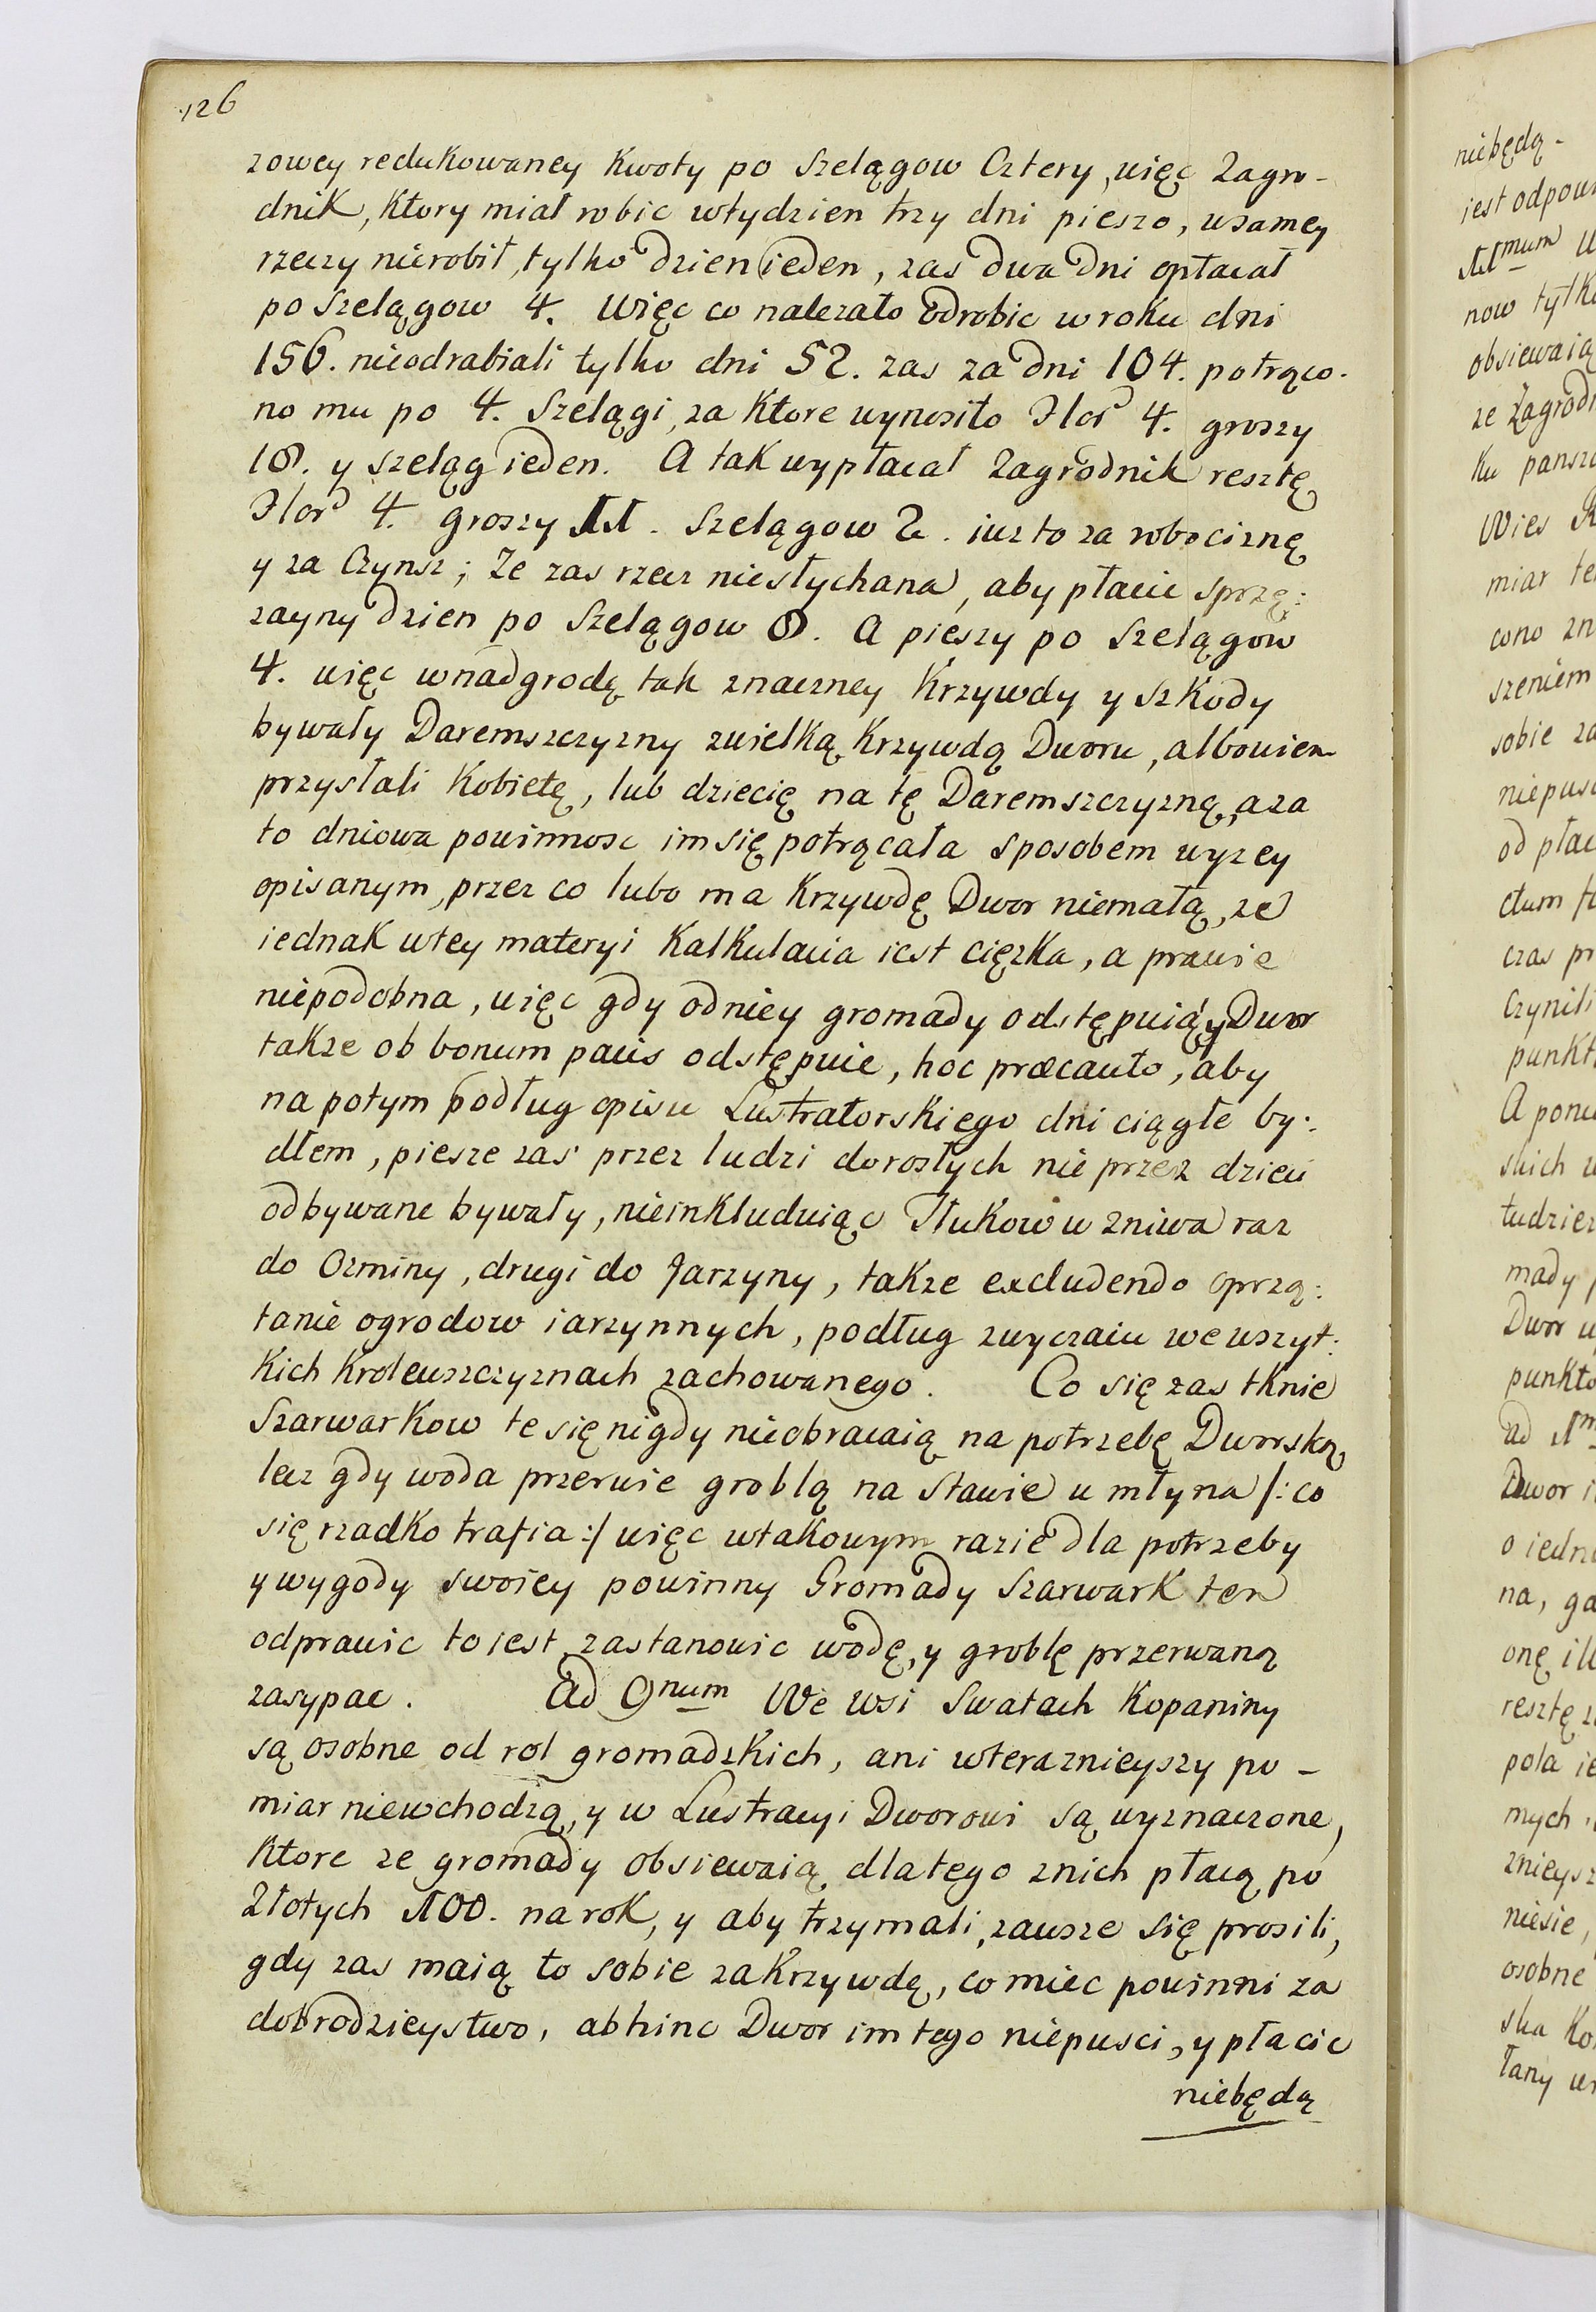 126
zowey redukowaney kwoty po Szelągow Cztery, więc Zagro-
dnik, ktory miał robic wtydzien trzy dni pieszo, wsamey
rzeczy nierobił, tylko dzien ieden, zas dwa dni opłacał
po Szelągow 4. Więc co nalezało odrobic w roku dni
156. nieodrabiali tylko dni 52. zas za dni 104. potrąco-
no mu po 4. Szelągi, za ktore wynosiło Flor 4. groszy
18. y szeląg ieden. A tak wypłacał Zagrodnik resztę
Flor 4. groszy 11. Szelągow 2. iuz to za robociznę
y za Czynsz; Ze zas rzecz niesłychana, aby płacic sprzę:
zayny dzien po Szelągow 8. A pieszy po Szelągow
4. więc wnadgrodę tak znaczney Krzywdy y szkody
bywały Daremszczyzny zwielką Krzywdą Dworu, albowiem
przysłali Kobietę, lub dziecię na tę Daremszczyznę, a za
to dniowa powinnosc im się potrącała sposobem wyzey
opisanym, przez co lubo ma Krzywdę Dwor niemałą, ze
iednak wtey materyi Kalkulacia iest cięzka, a prawie
niepodobna, więc gdy odniey gromady odstępuią, y Dwor
takze ob bonum pacis odstępuie, hoc præcauto, aby
na potym podług opisu Lustratorskiego dni ciągłe by:
dłem, piesze zas przez ludzi dorosłych nie przez dzieci
odbywane bywały, nieinkluduiąc Tłukow w zniwa raz
do Ozminy, drugi do Jarzyny, takze excludendo oprzą:
tanie ogrodow iarzynnych, podług zwyczaiu we wszyt:
kich Krolewszczyznach zachowanego. Co się zas tknie
Szarwarkow te się nigdy nieobracaią na potrzebę Dworską,
lecz gdy woda przerwie groblą na Stawie u młyna /: co
się rzadko trafia :/ więc wtakowym razie dla potrzeby
y wygody swoiey powinny Gromady Szarwark ten
odprawic to iest zastanowic wodę, y groblę przerwaną
zasypac. Ad 9num We wsi Swatach Kopaniny
są osobne od rol gromadzkich, ani wteraznieyszy po-
miar niewchodzą, y w Lustracyi Dworowi są wyznaczone,
Ktore ze gromady obsiewaią dlatego znich płacą po
Złotych 100. na rok, y aby trzymali, zawsze się prosili,
gdy zas maią to sobie za Krzywdę, co miec powinni za
dobrodzieystwo, abhinc Dwor im tego niepusci, y płacic
niebędą
niebędą
now tylko
obsiewaią
Wies
miar
cono
szeniem
sobie
czas
Czynili
mady
Dwor
Dwor
na,
resztę
pola
niesie,
osobne